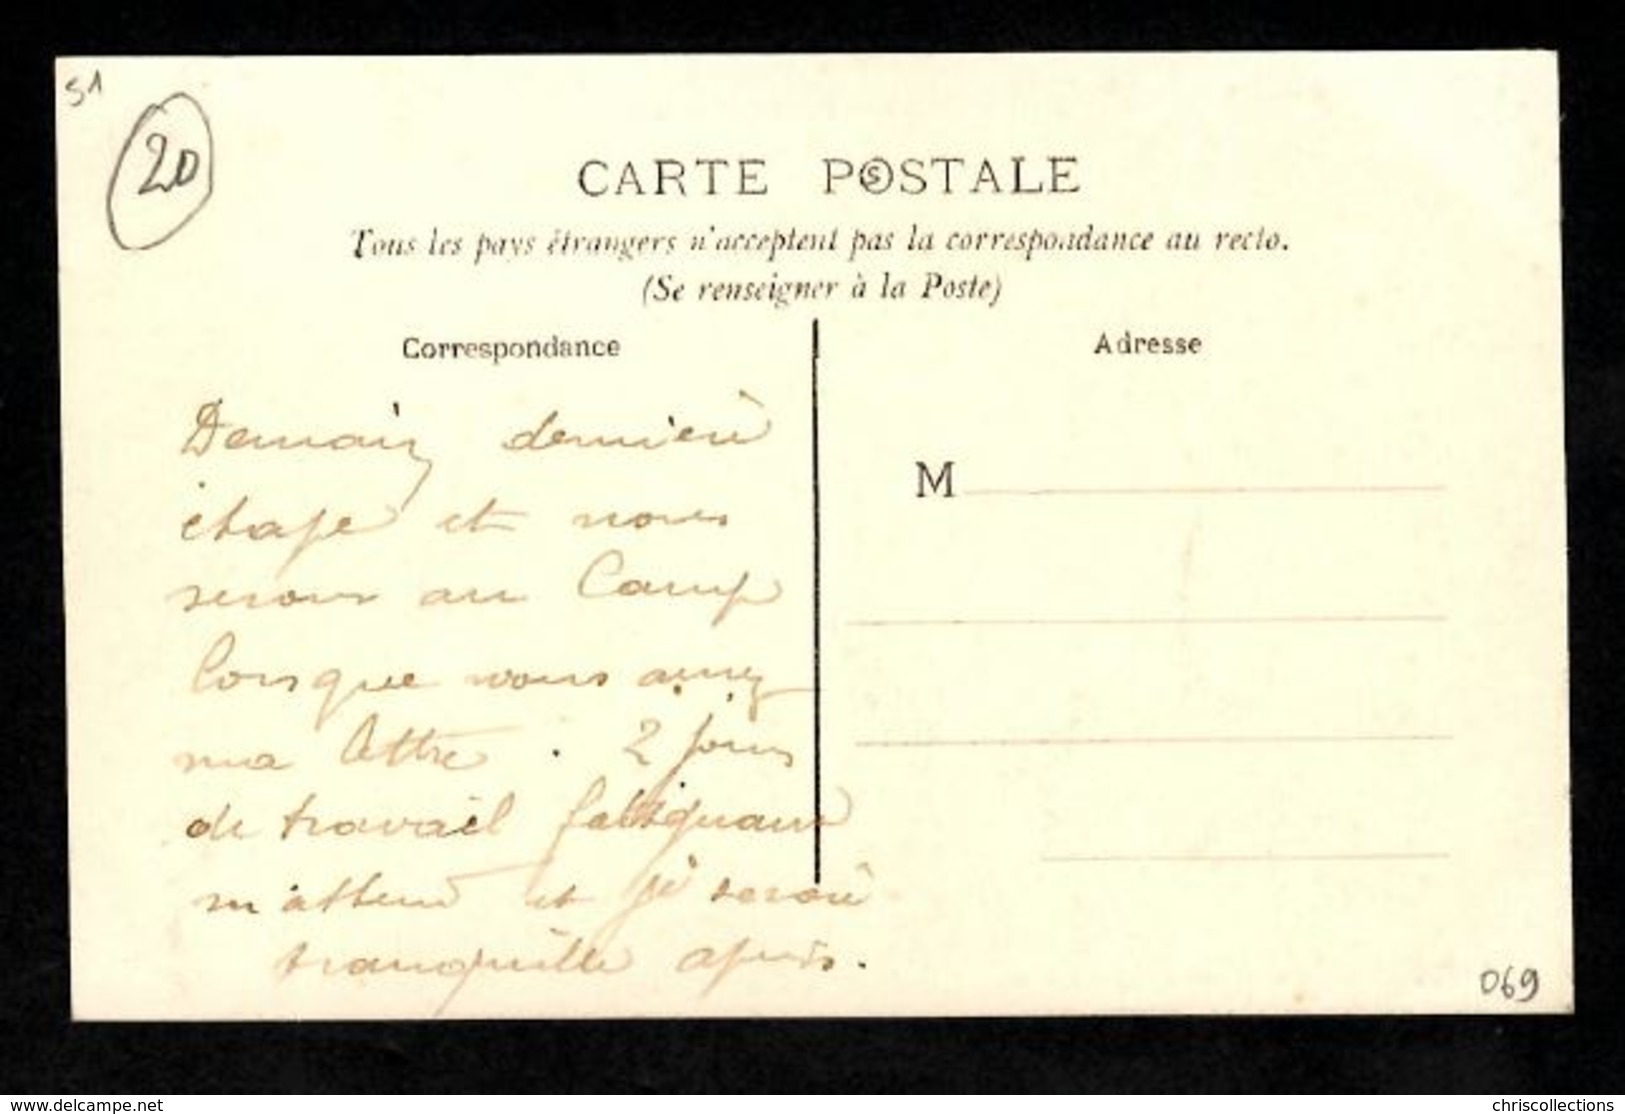 51
20
CARTE POSTALE
Tous les pays étrangers n'acceptent pas la correspondance au recto.
(Se renseigner à la Poste)
Correspondance
Adresse
M
Demain dernière
étape et nous
serons au Camp
lorsque vous aurez
ma lettre. 2 jours
de travail fatiguant
m'attend et je serai
tranquille après.
069
www.delcampe.net
chriscollections